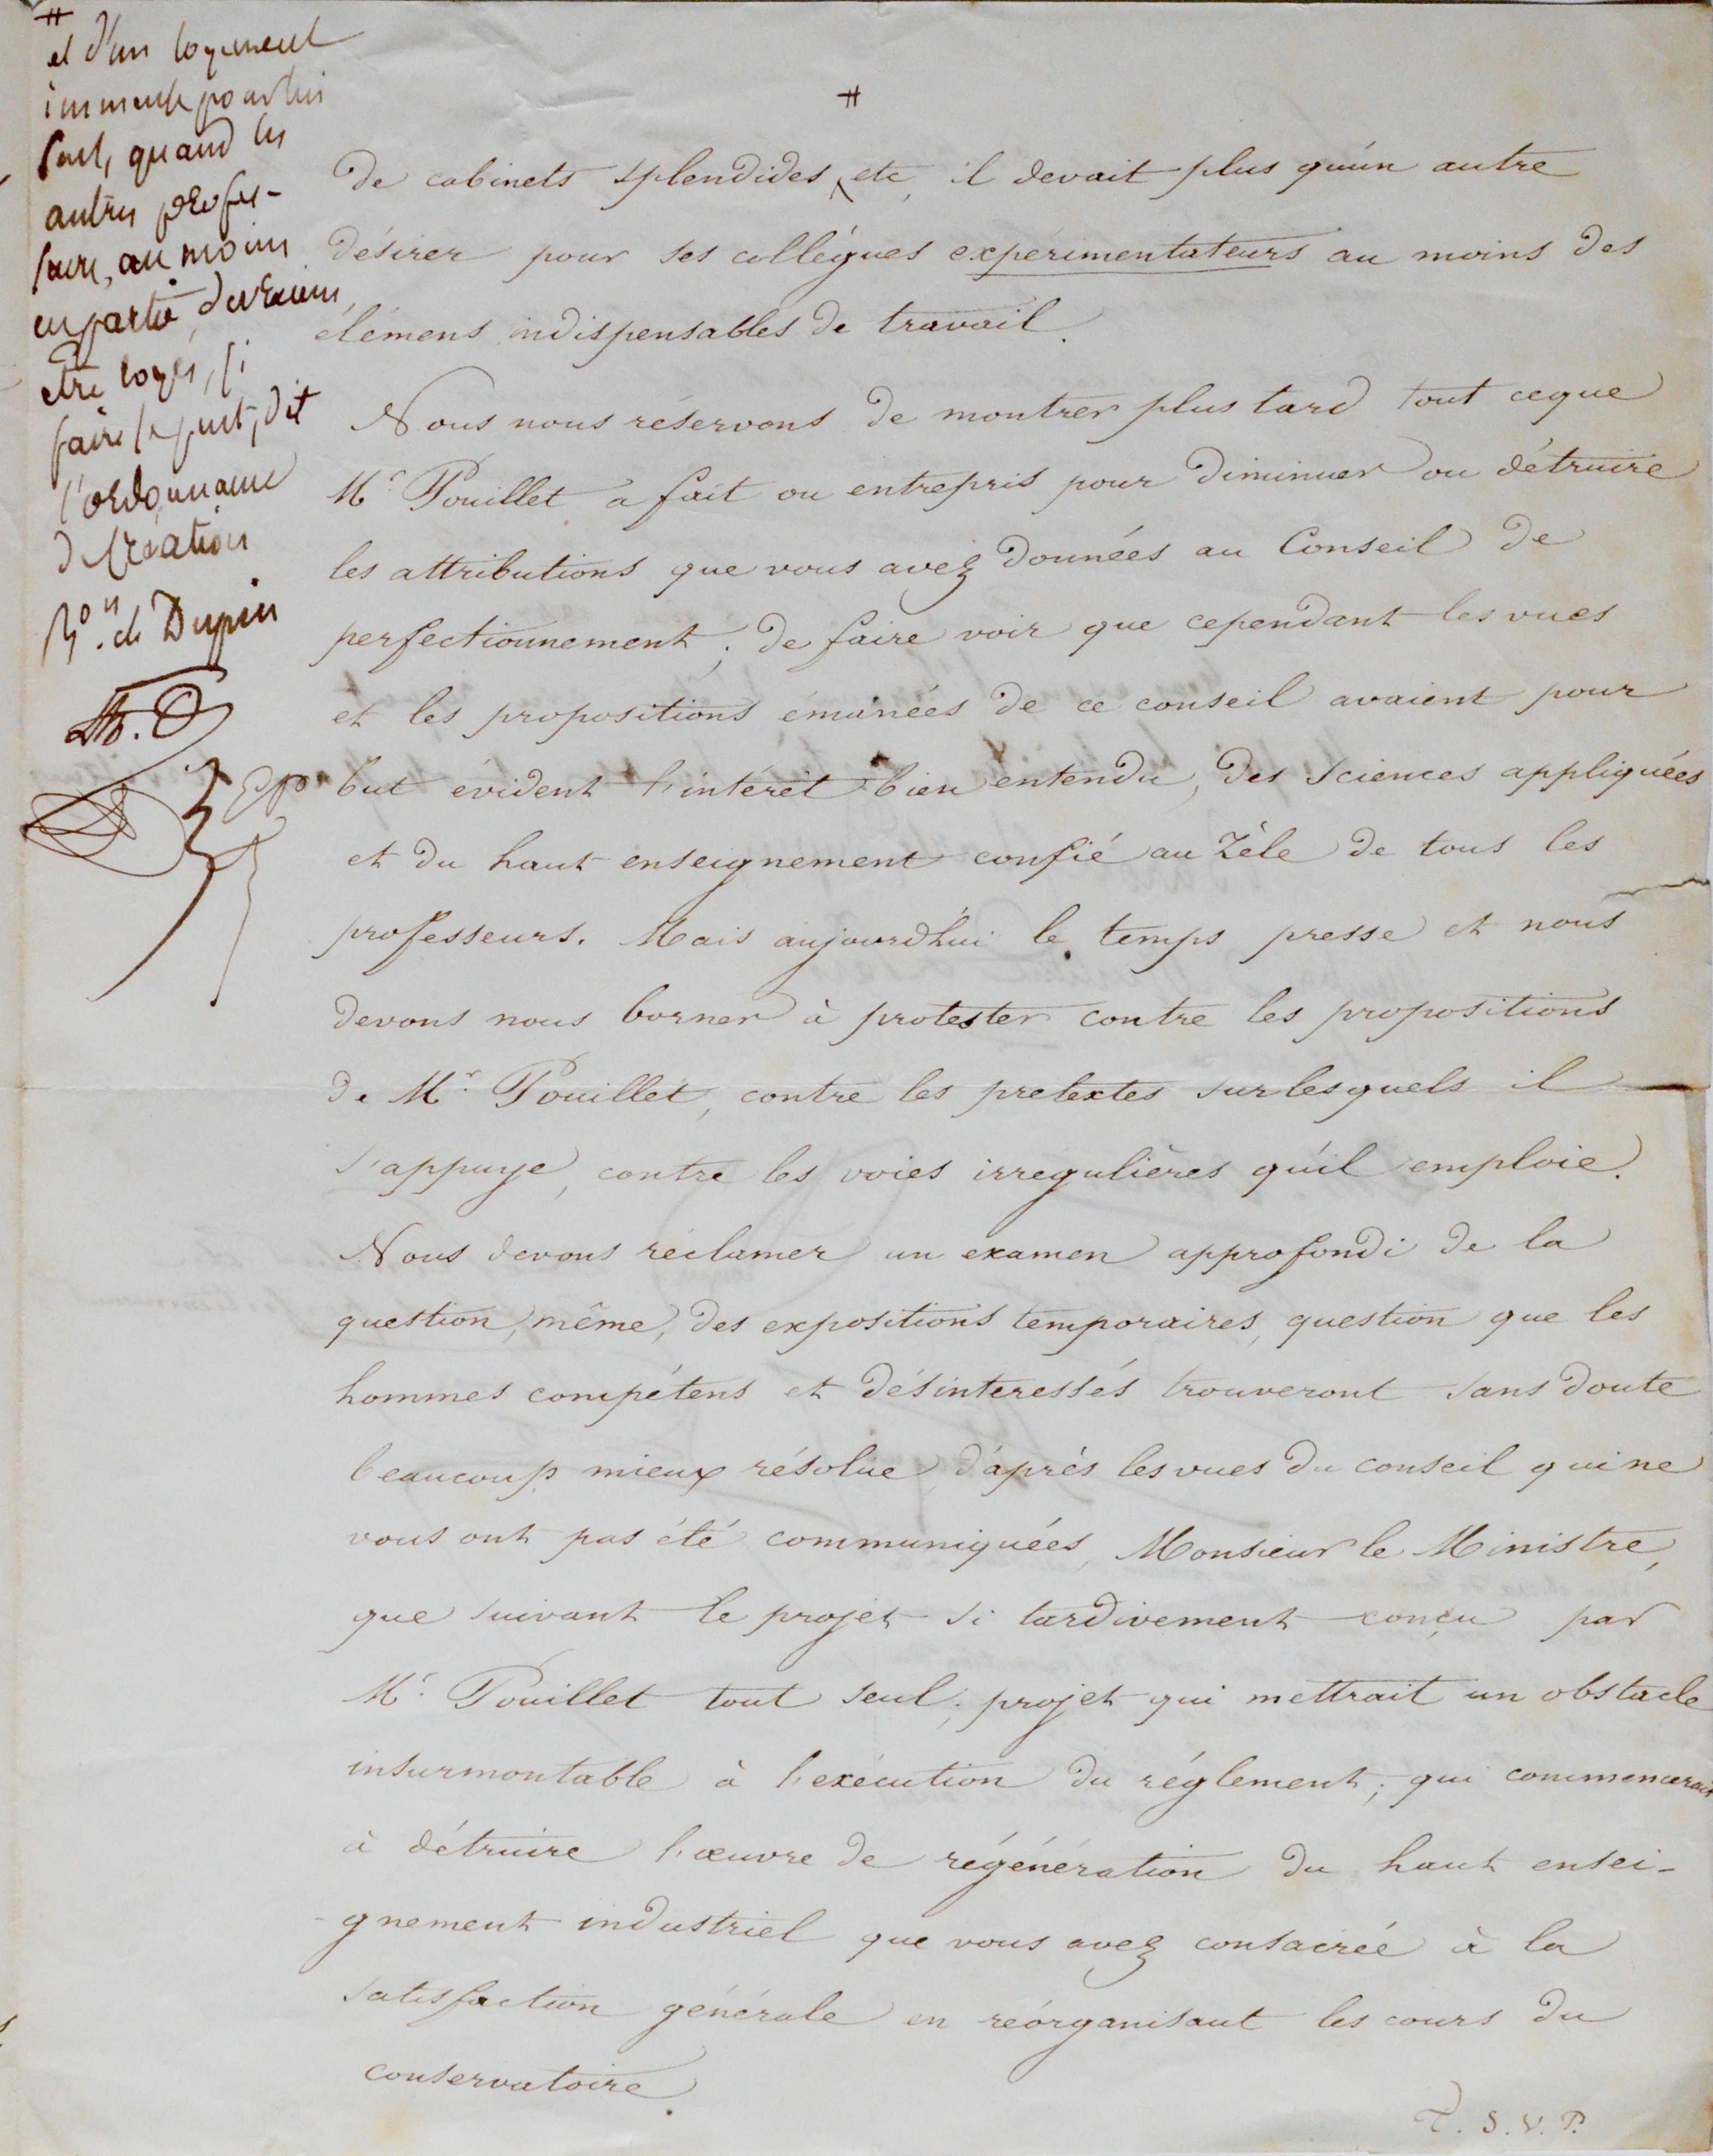 #
et d'un logement
immense pour lui
seul, quand les
autres profes-
seurs, au moins
en partie, devraient
être logés, si
faire se peut, dit
l'ordonnance
de création
Bon. ch Dupin
#
de cabinets splendides, etc, il devait plus qu'un autre
désirer pour ses collégues expérimentateurs au moins des
élémens indispensables de travail.
Nous nous réservons de montrer plus tard tout ceque
Mr. Pouillet a fait ou entrepris pour diminuer ou détruire
les attributions que vous avez données au Conseil de
perfectionnement; de faire voir que cependant les vues
et les propositions émanées de ce conseil avaient pour
but évident l'intérêt bien entendu, des sciences appliquées
et du haut enseignement confié au Zèle de tous les
professeurs. Mais aujourd'hui le temps presse et nous
devons nous borner à protester contre les propositions
de Mr. Pouillet, contre les pretextes surlesquels il
s'appuye, contre les voies irregulières qu'il emploie.
Nous devons réclamer un examen approfondi de la
question, même, des expositions temporaires, question que les
hommes compétens et désinteressés trouveront sans doute
beaucoup mieux résolue d'après les vues du conseil qui ne
vous ont pas été communiquées, Monsieur le Ministre,
que suivant le projet si tardivement conçu par
Mr. Pouillet tout seul; projet qui mettrait un obstacle
insurmontable à l'exécution du réglement; qui commencerait
à détruire l'œuvre de régénération du haut ensei-
-gnement industriel que vous avez consacrée à la
satisfaction générale en réorganisant les cours du
conservatoire.
T. S. V. P.